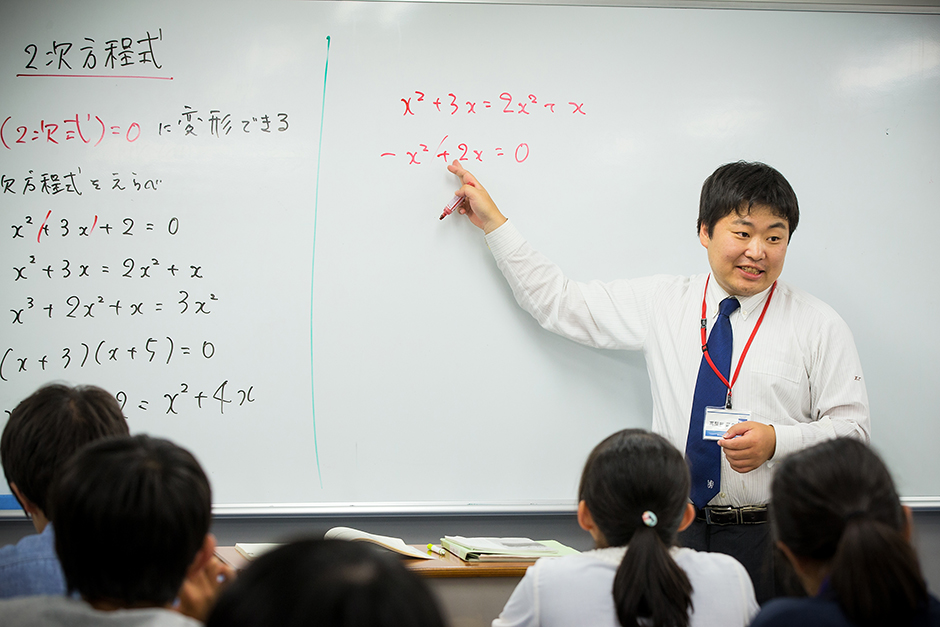 2次方程式
(2次式)=0 に変形できる
次方程式をえらべ
x²+3x+2=0
x²+3x=2x²+x
x³+2x²+x=3x²
(x+3)(x+5)=0
2=x²+4x
x²+3x=2x²+x
-x²+2x=0